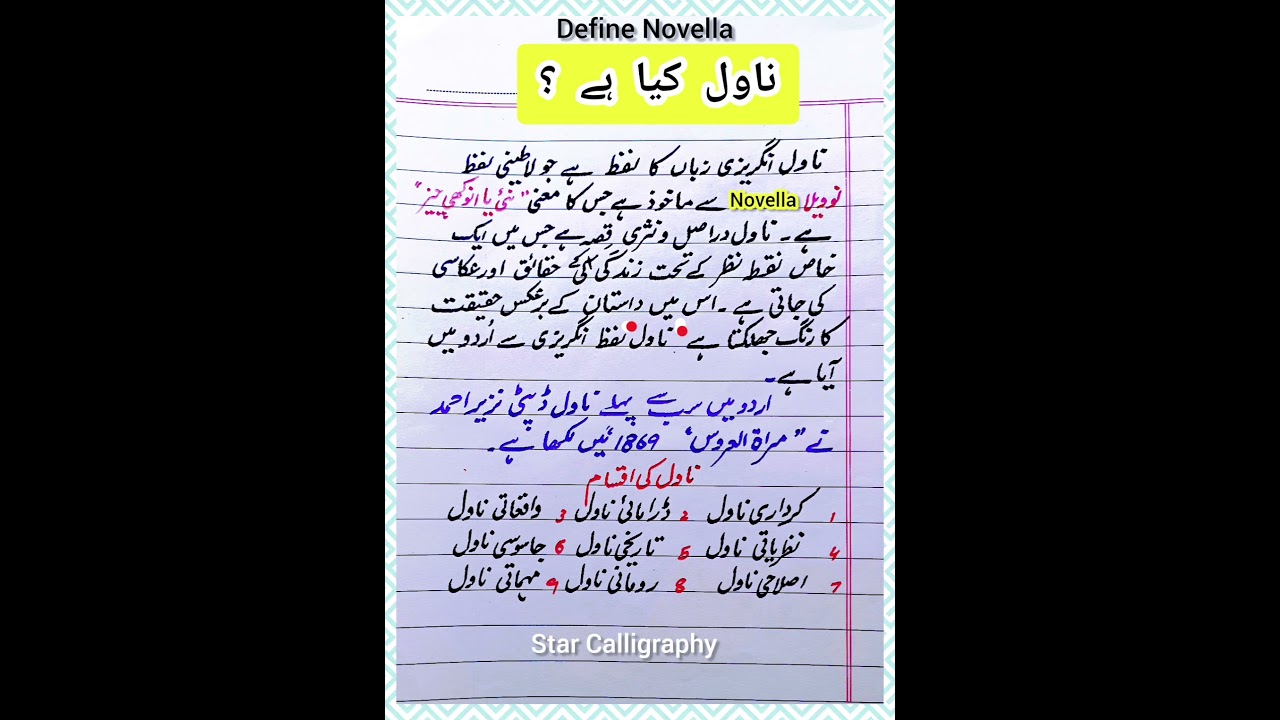 Define Novella
ناول کیا ہے ؟
ناول انگریزی زباں کا لفظ ہے جو لاطینی لفظ
نوویلا Novella سے ماخوذ ہے جس کا معنی "نئی یا انوکھی چیز"
ہے۔ ناول دراصل وہ نثری قصہ ہے جس میں ایک
خاص نقطہ نظر کے تحت زندگی کے حقائق اور عکاسی
کی جاتی ہے۔ اس میں داستان کے برعکس حقیقت
کا رنگ جھلکتا ہے ناول لفظ انگریزی سے اُردو میں
آیا ہے۔
اردو میں سب سے پہلے ناول ڈپٹی نزیر احمد
نے "مراۃ العروس" 1869 میں لکھا ہے۔
ناول کی اقسام
1 کرداری ناول 2 ڈرامائی ناول 3 واقعاتی ناول
4 نظریاتی ناول 5 تاریخی ناول 6 جاسوسی ناول
7 اصلاحی ناول 8 رومانی ناول 9 مہماتی ناول
Star Calligraphy